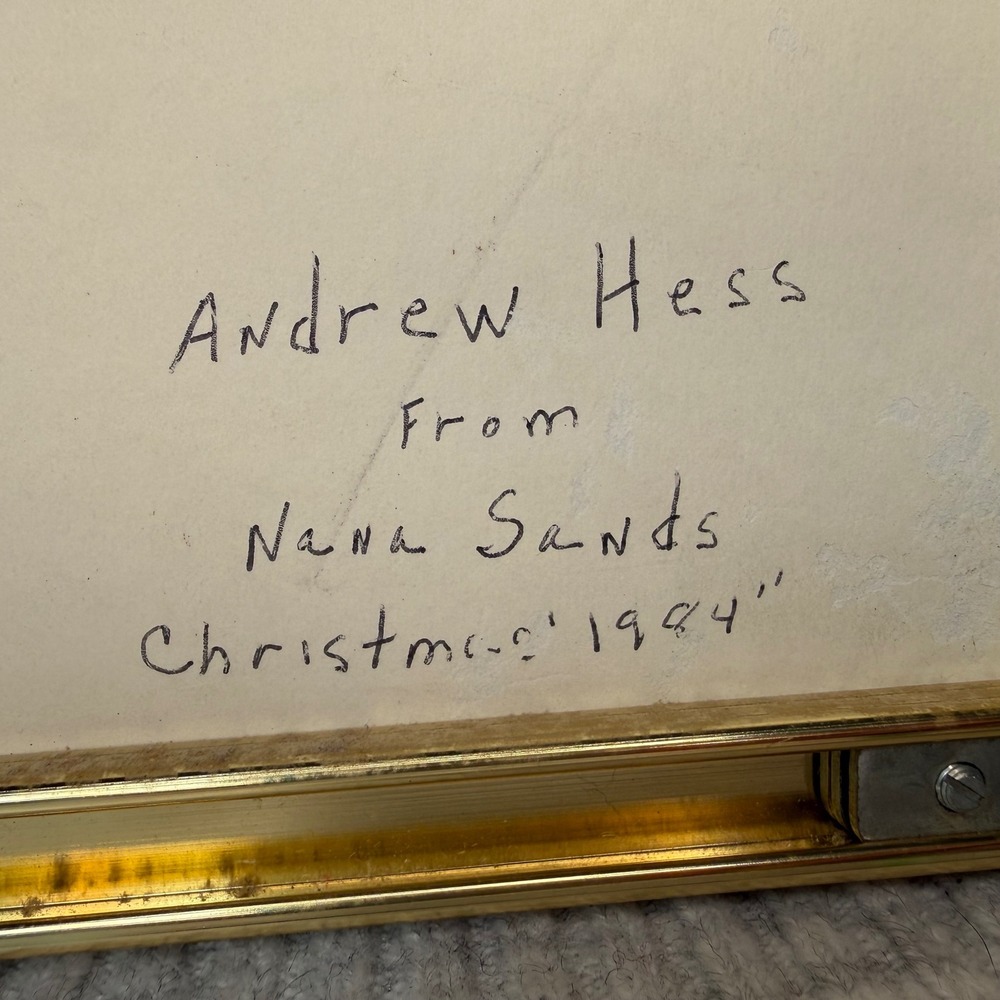 Andrew Hess
From
Nana Sands
Christmas '1984"